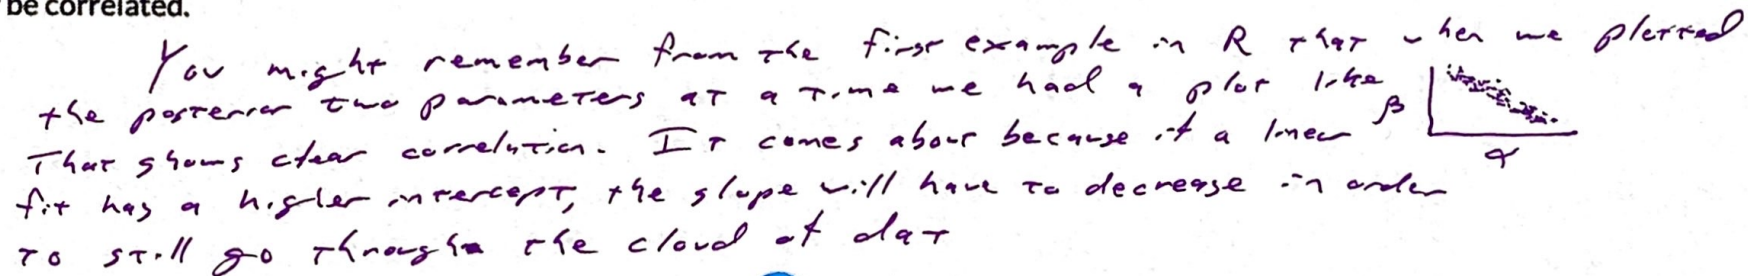 be correlated.
You might remember from the first example in R that when we plotted
the posterior two parameters at a time we had a plot like
That shows clear correlation. It comes about because if a linear
β
α
fit has a higher intercept, the slope will have to decrease in order
to still go through the cloud of dat